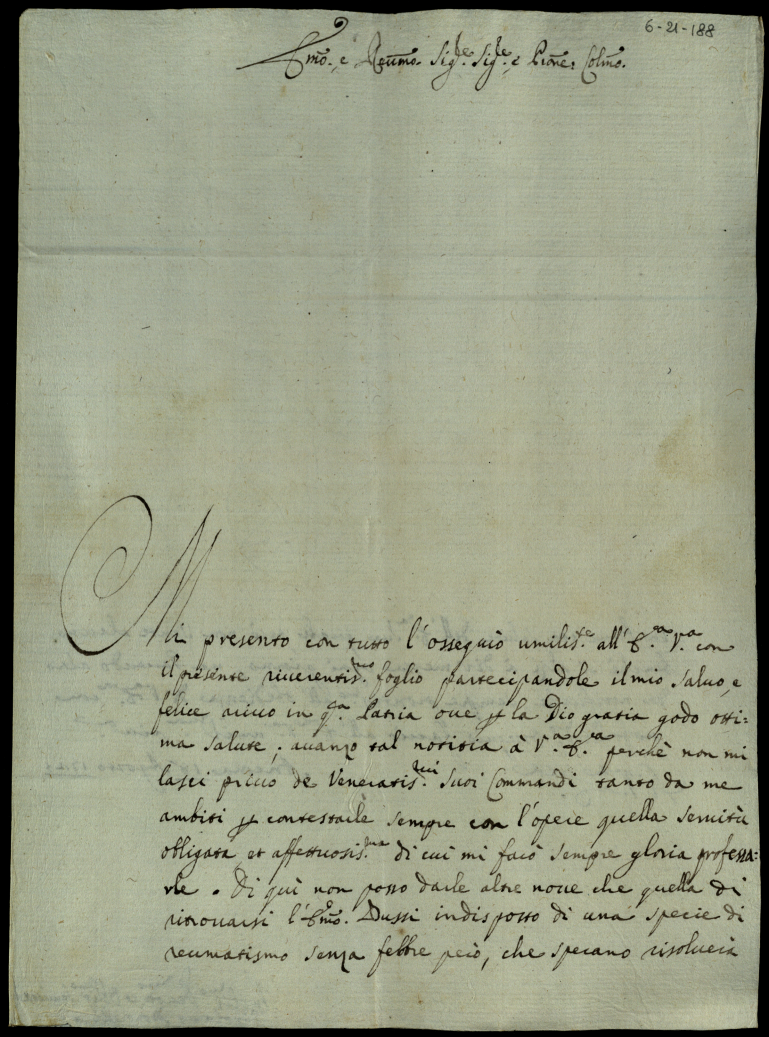 6-21-188
Emo. e Reumo. Sigre. Sigre. e Prone. Colmo.
Mi presento con tutto l'osseguio umilisse. all' Ea. Va. con
il presente riuerentismo. foglio partecipandole il mio saluo, e
felice ariuo in qta. Patria oue p la Dio gratia godo otti=
ma salute; auanzo tal notitia à Va. Ea. perchè non mi
lasci priuo de Veneratismi. suoi Commandi tanto da me
ambiti p contestarle sempre con l'opere quella seruitù
obligata, et affettuosisma. di cui mi faciò sempre gloria professa:
rle. Di quì non posso darle altre noue che quella di
ritrouarsi l'Emo. Bussi indisposto di una specie di
reumatismo senza febbre però, che sperano risoluerà